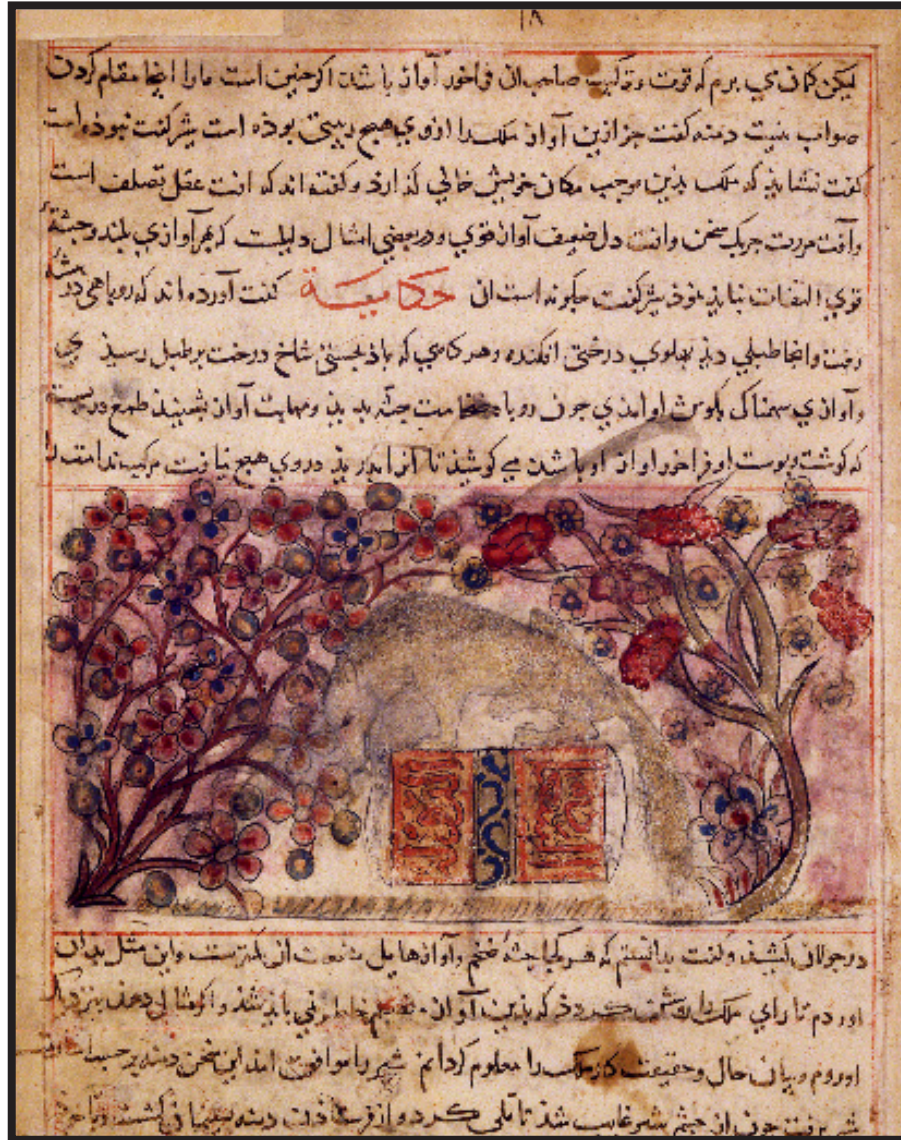 ١٨
لیکن کمان می برم که قوت و ترکیب صاحب ان فراخور آواز باشد اکر چنین است مارا اینجا مقام کردن
صواب نیست دمنه کفت جز ازین آواز ملک را ازوی هیچ ریبتی بوذه است شیر کفت نبوذه است
کفت نشاید که ملک بذین موجب مکان خویش خالی کذارد و کفته اند که افت عقل تصلف است
وآفت مروت چربک سخن وافت دل ضعیف آواز قوی ودر بعضی امثال دلیلست که بهر آوازی بلند وجثه
قوی التفات نبایذ نموذ شیر کفت چکونه است ان حکایت کفت آورده اند که روباهی در بیشه
رفت وانجا طبلی دید بهلوی درختی افکنده وهر کاهی که باد بجستی شاخ درخت بر طبل رسیذی
وآوازی سهمناک بکوش او امذی جون روباه ضخامت جثه بدید ومهابت آواز بشنید طمع در بست
که کوشت وپوست او فراخور اواز او باشد می کوشید تا آنرا بدرید در وی هیچ نیافت مرکب ندامت را
در جولان کشید وکفت بدانستم که هر کجا جثه ضخم وآواز هایل منفعت ازان کمترست واین مثل بدان
اوردم تا رای ملک را روشن کردد که بذین آواز متقسم خاطر نمی باید شد واکر مثال دهد بنزدیک
او روم وبیان حال وحقیقت کار ملک را معلوم کردانم شیر را موافق امد این سخن دمنه بر حسب
برفت جون از چشم شیر غایب شد تاملی کرد واز فرستادن دمنه پشیمان کشت